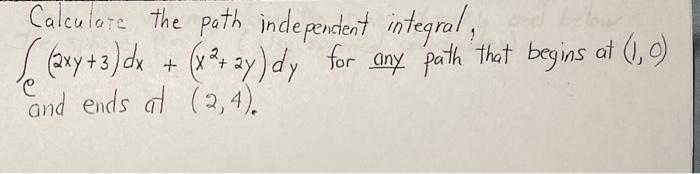 Calculate the path independent integral,
∫_C (2xy+3)dx + (x²+2y)dy for any path that begins at (1,0)
and ends at (2,4).